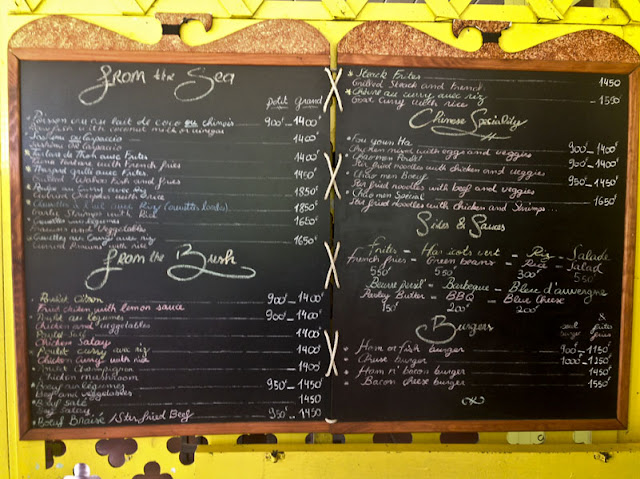 From the Sea
petit grand
Poisson cru au lait de coco ou chinois 900f - 1400f
Raw fish with coconut milk or vinegar
Sashimi ou Carpaccio 1400f
Sashimi ou Carpaccio
Tartare de Thon avec Frites 1400f
Tuna Tartare with French fries
Thazard grillé avec Frites 1450f
Grilled Wahoo fish and fries
Poulpe au Curry avec riz 1850f
Curry with Rice
1850f
Garlic Shrimps with Rice
Crevettes aux légumes 1650f
Prawns and Vegetables
Crevettes au Curry avec riz 1650f
Curried Prawns with rice
From the Bush
Poulet Citron 900f - 1400f
Fried chicken with lemon sauce
Poulet aux légumes 900f - 1400f
Chicken and vegetables
Poulet Salé 1400f
Chicken Salay
Poulet curry avec riz 1400f
Chicken Curry with rice
Poulet Champignon 1400f
Chicken mushroom
Boeuf aux légumes 950f - 1450f
Beef and vegetables
Boeuf saté 1450
Beef Salay
Boeuf Braisé / Ster fried Beef 950f - 1450
Steack Frites 1450
Grilled Steack and French
Chèvre au curry avec riz 1550f
Goat Curry with rice
Chinese Speciality
Fou young Ha 900f - 1400f
Chicken mixed with eggs and veggies
Chao men Poulet 900f - 1400f
Star fried noodles with chicken and veggies
Chao men Boeuf 950f - 1450f
Star fried noodles with beef and veggies
Chao men Special 1650f
Star fried noodles with chicken and Shrimps...
Sides & Sauces
Frites - Haricots vert - Ris - Salade
French fries - Green beans - Rice - Salad
550f 550f 300f 550f
Beurre persil - Barbeque - Bleu d'auvergne
Parsley Butter - BBQ - Blue Cheese
150f 200f 200f
Burgers
&
sont frites
burger fries
Ham or fish burger 900f - 1150f
Chese burger 1000f - 1250f
Ham n' bacon burger 1450f
Bacon chese burger 1550f